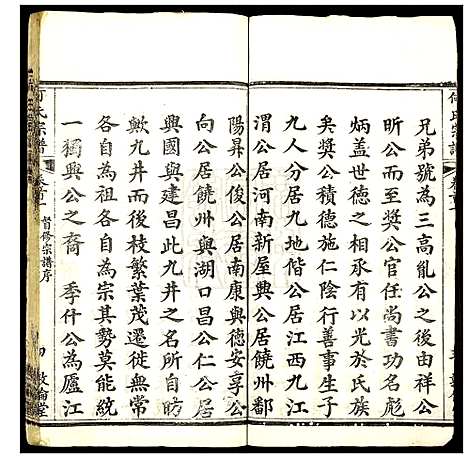 何氏宗譜
兄弟號為三高胤公之後由祥公
昕公而至奬公官任尚書功名彪
炳蓋世德之相承有以光於氏族
矣奬公積德施仁陰行善事生子
九人分居九地偕公居江西九江
河公居河南新屋興公居贛州鄱
陽昇公俊公居南康興德安享公
向公居饒州與湖口昌公仁公居
興國與建昌此九公九井之所自昉
歟九井而後枝繁葉茂遷徙無常
各自為祖各自為宗其勢莫能統
一獨興公之裔 季什公為廬江
何氏宗譜
卷首
督修宗譜序
敦倫堂